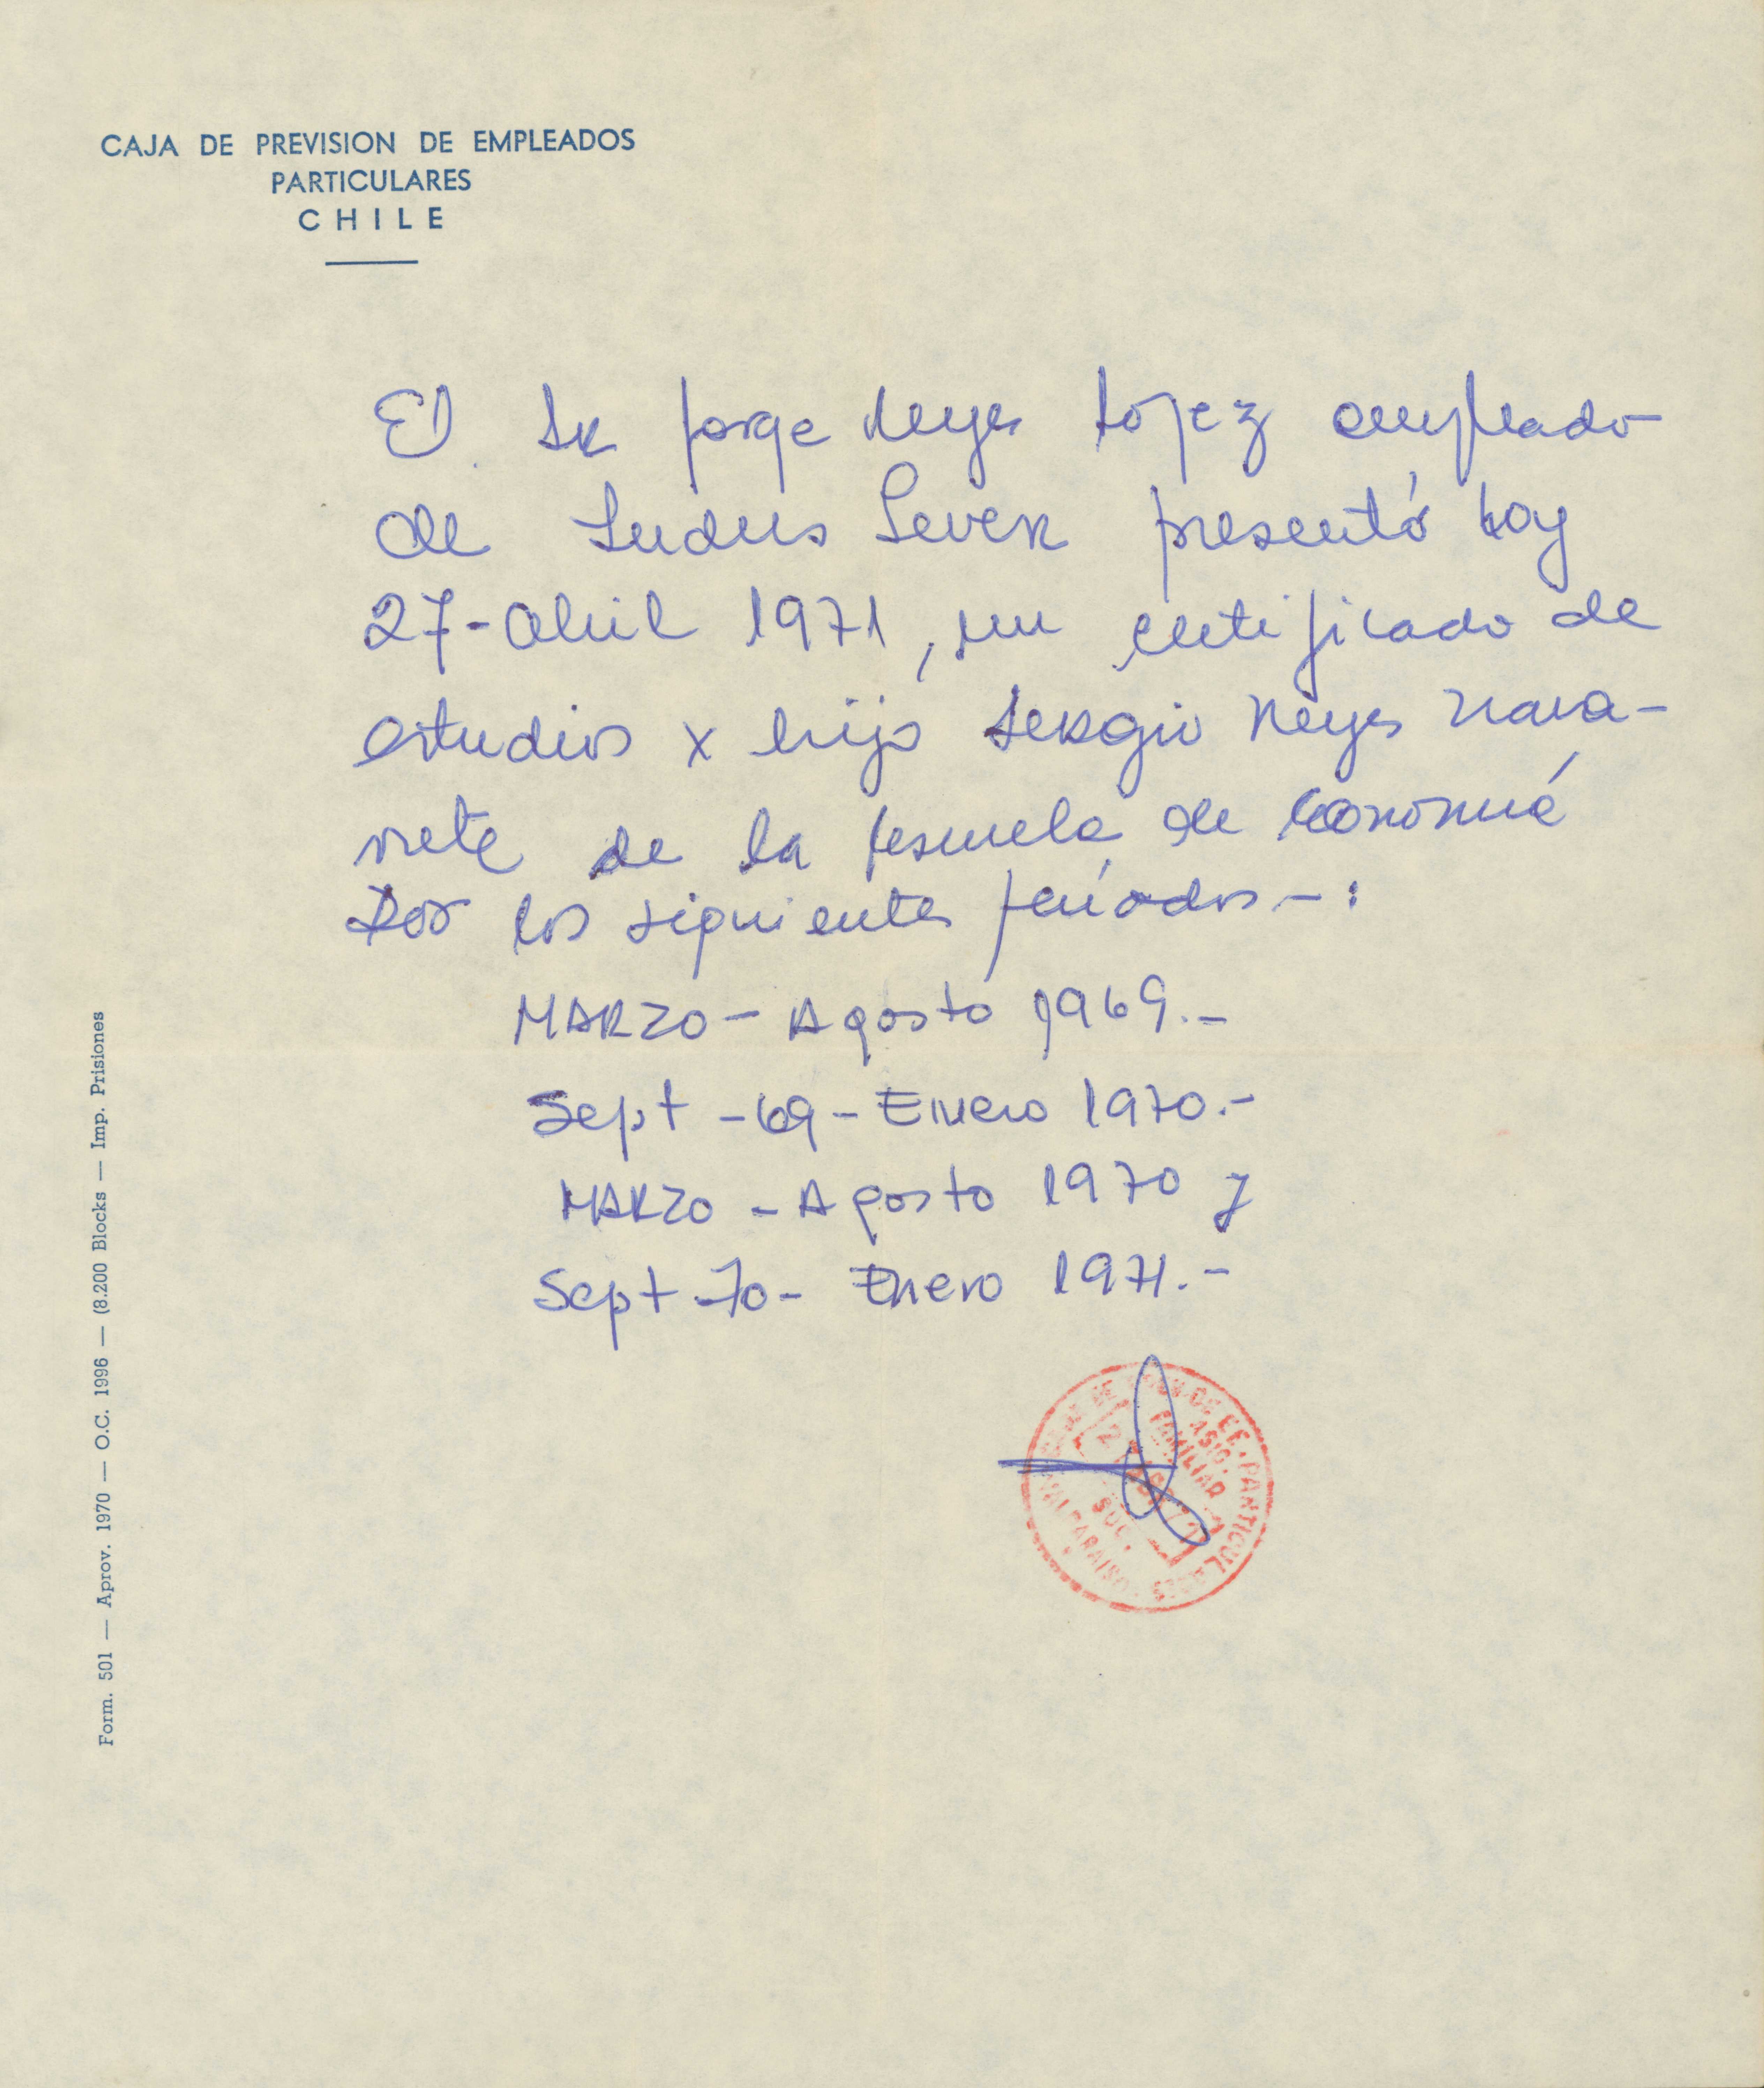 CAJA DE PREVISION DE EMPLEADOS
PARTICULARES
CHILE
El Sr Jorge Reyes López empleado
de Indus Lever presentó hoy
27-Abril 1971, un certificado de
estudios x hijo Sergio Reyes Nava-
rrete de la Escuela de Economía
Por los siguientes períodos-:
MARZO - Agosto 1969.-
Sept - 69 - Enero 1970.-
MARZO - Agosto 1970 y
Sept - 70 - Enero 1971.-
PARTICULARES
ASIG.
FAMILIAR
SUC.
VALPARAISO
Form. 501 — Aprov. 1970 — O.C. 1996 — (8.200 Blocks — Imp. Prisiones